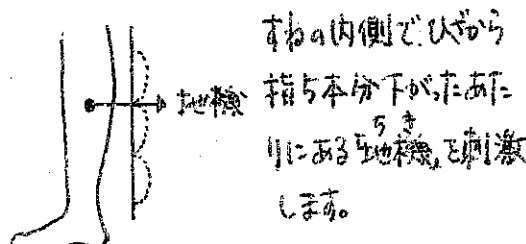 地機
すねの内側で、ひざから
指5本分下がったあた
りにある「地機」を刺激
ちき
します。